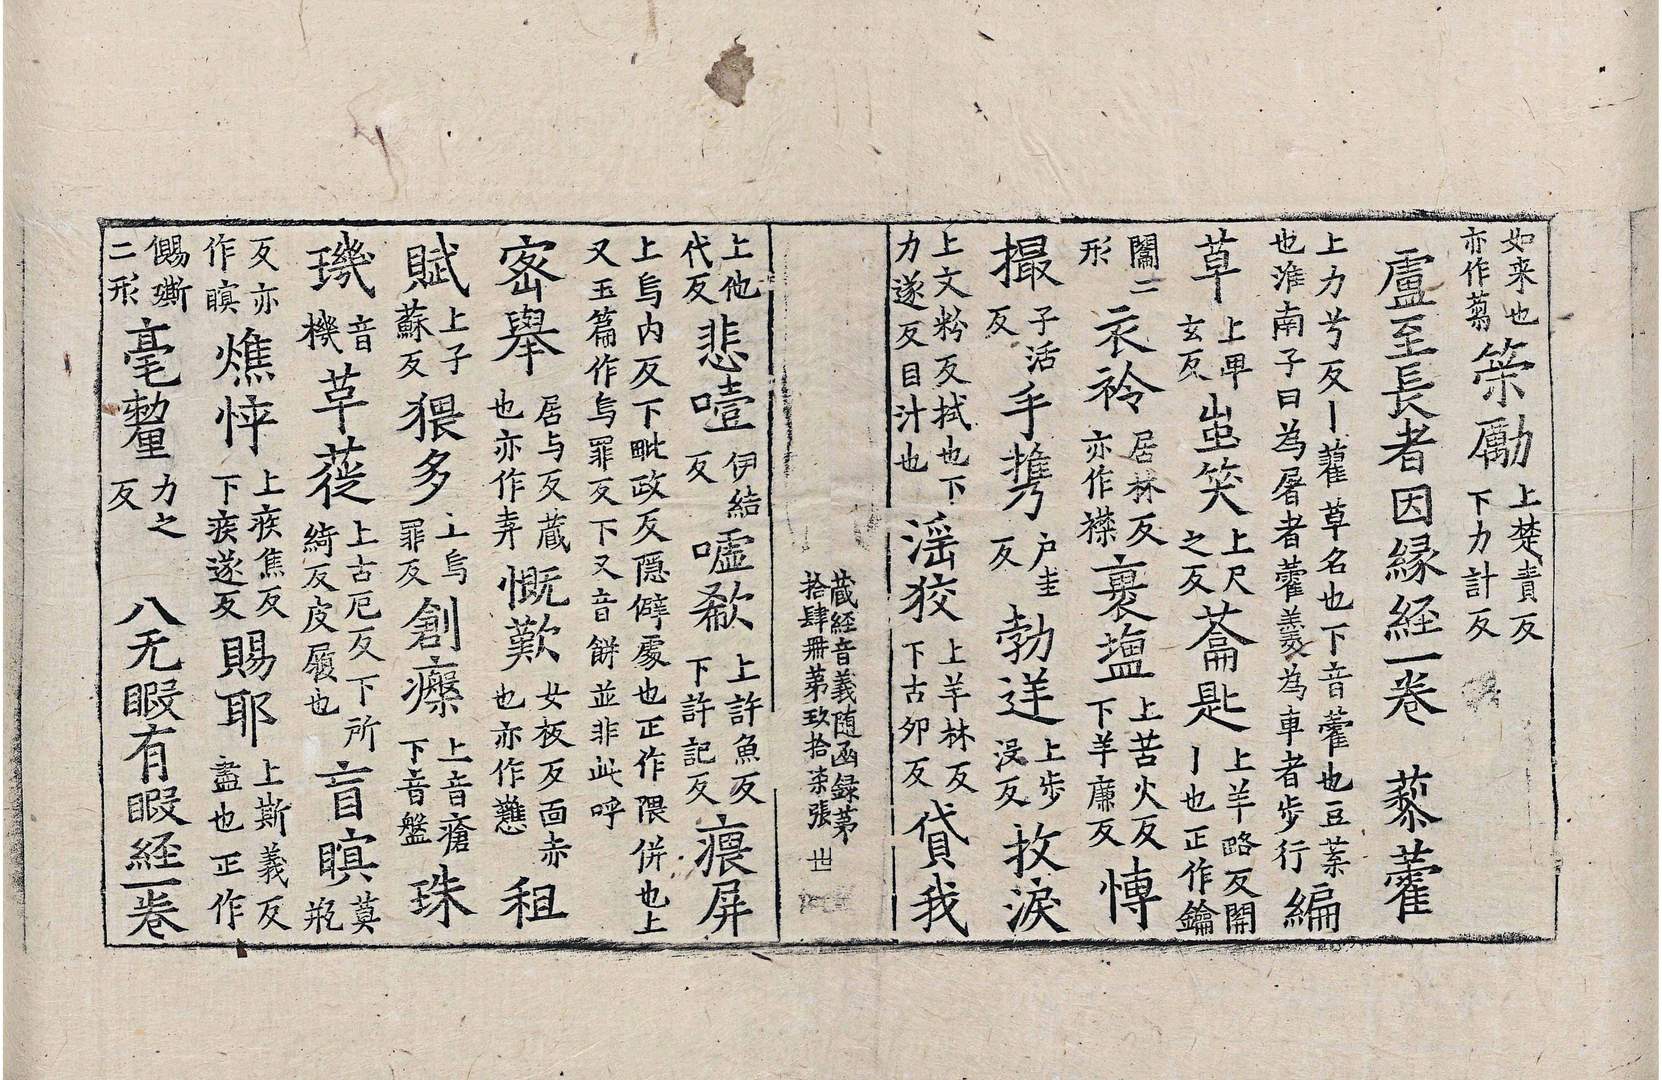 如来也亦作蒭 䇿勵 上楚責反下力計反
盧至長者因緣經一卷 藜藿
上力兮反丨藋草名也下音藿也豆葉也淮南子曰為屠者藿羹為車者步行 編
草 上卑玄反 蚩笑 上尺之反 蘥匙 上羊略反開丨也正作鑰
闟二形 衣衿 居林反亦作襟 裹塩 上苦火反下羊廉反 慱
撮 子活反 手㩗 户圭反 勃逆 上步浸反 抆淚
上文粉反拭也下力遂反目汁也 淫狡 上羊林反下古卯反 貸我
藏經音義随函録第拾肆冊第玖拾柒張 世
上他代反 悲噎 伊結反 嘘欷 上許魚反下許記反 㾗屏
上烏內反下毗政反隱僻處也正作隈併也上又玉篇作烏罪反下又音餅並非此呼
宻舉 居与反藏也亦作弆 慨歎 女板反面赤也亦作戁 租
賦 上子蘇反 猥多 上烏罪反 創瘢 上音瘡下音盤 珠
璣 音機 草蓰 上古厄反下所綺反皮屣也 盲瞑 莫瓶
反亦作瞑 憔悴 上疾焦反下疾遂反 賜耶 上斯義反盡也正作
儩澌二形 毫釐 力之反 八无暇有暇經一卷